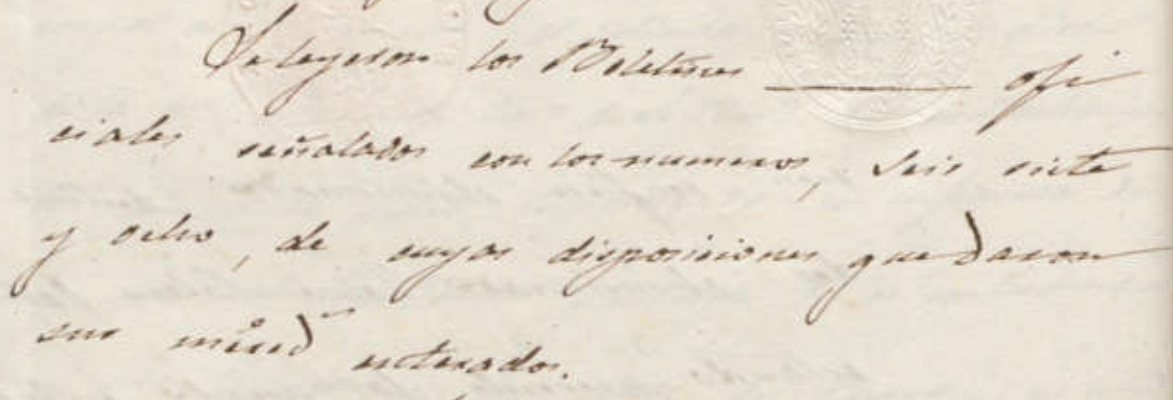 Se leyeron los Boletines ofi
ciales señalados con los numeros, seis siete
y ocho, de cuyas disposiciones quedaron
sus mercd enterados.